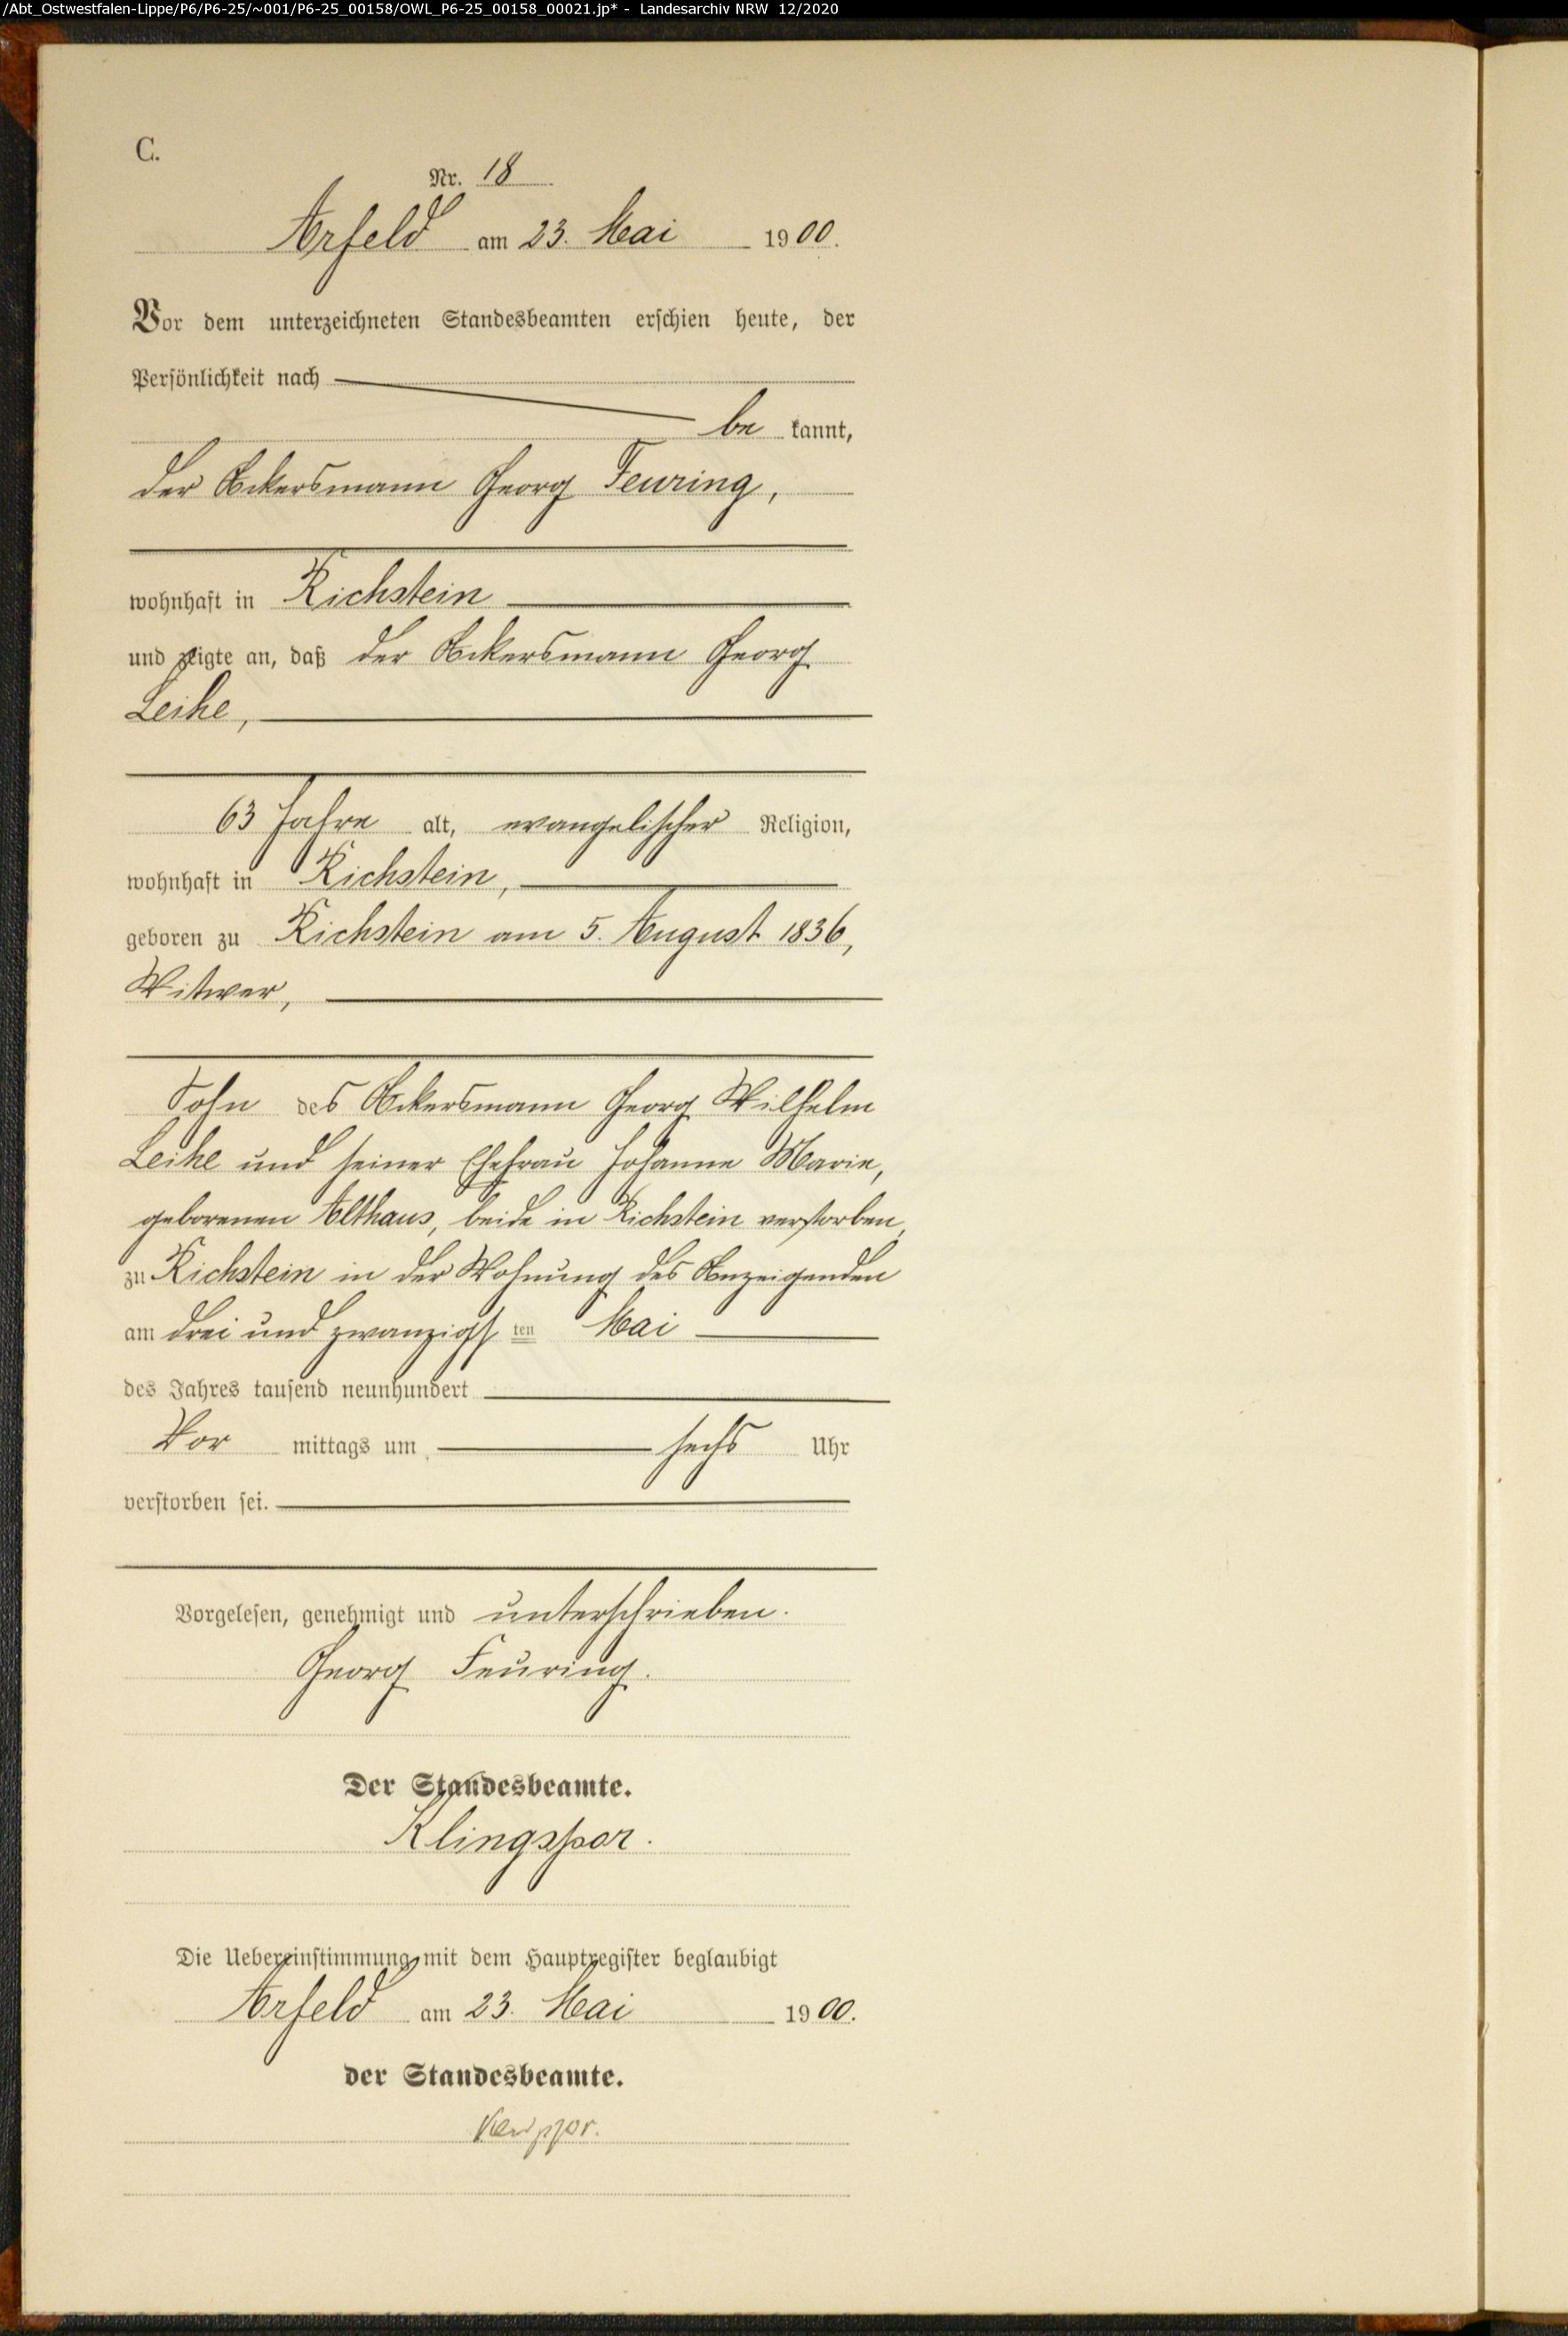 /Abt_Ostwestfalen-Lippe/P6/P6-25/~001/P6-25_00158/OWL_P6-25_00158_00021.jp* - Landesarchiv NRW 12/2020
C.
Nr. 18
Arfeld am 23. Mai 1900.
Vor dem unterzeichneten Standesbeamten erschien heute, der
Persönlichkeit nach
be kannt,
der Ackersmann Georg Feuring,
wohnhaft in Richstein
und zeigte an, daß der Ackersmann Georg
Leike,
63 Jahre alt, evangelischer Religion,
wohnhaft in Richstein,
geboren zu Richstein am 5. August 1836,
Witwer,
Sohn des Ackersmann Georg Wilhelm
Leike und seiner Ehefrau Johanne Marie,
geborenen Althaus, beide in Richstein verstorben,
zu Richstein in der Wohnung des Anzeigenden
am drei und zwanzigsten Mai
des Jahres tausend neunhundert
Vor mittags um sechs Uhr
verstorben sei.
Vorgelesen, genehmigt und unterschrieben.
Georg Feuring.
Der Standesbeamte.
Klingspor.
Die Uebereinstimmung mit dem Hauptregister beglaubigt
Arfeld am 23. Mai 1900.
der Standesbeamte.